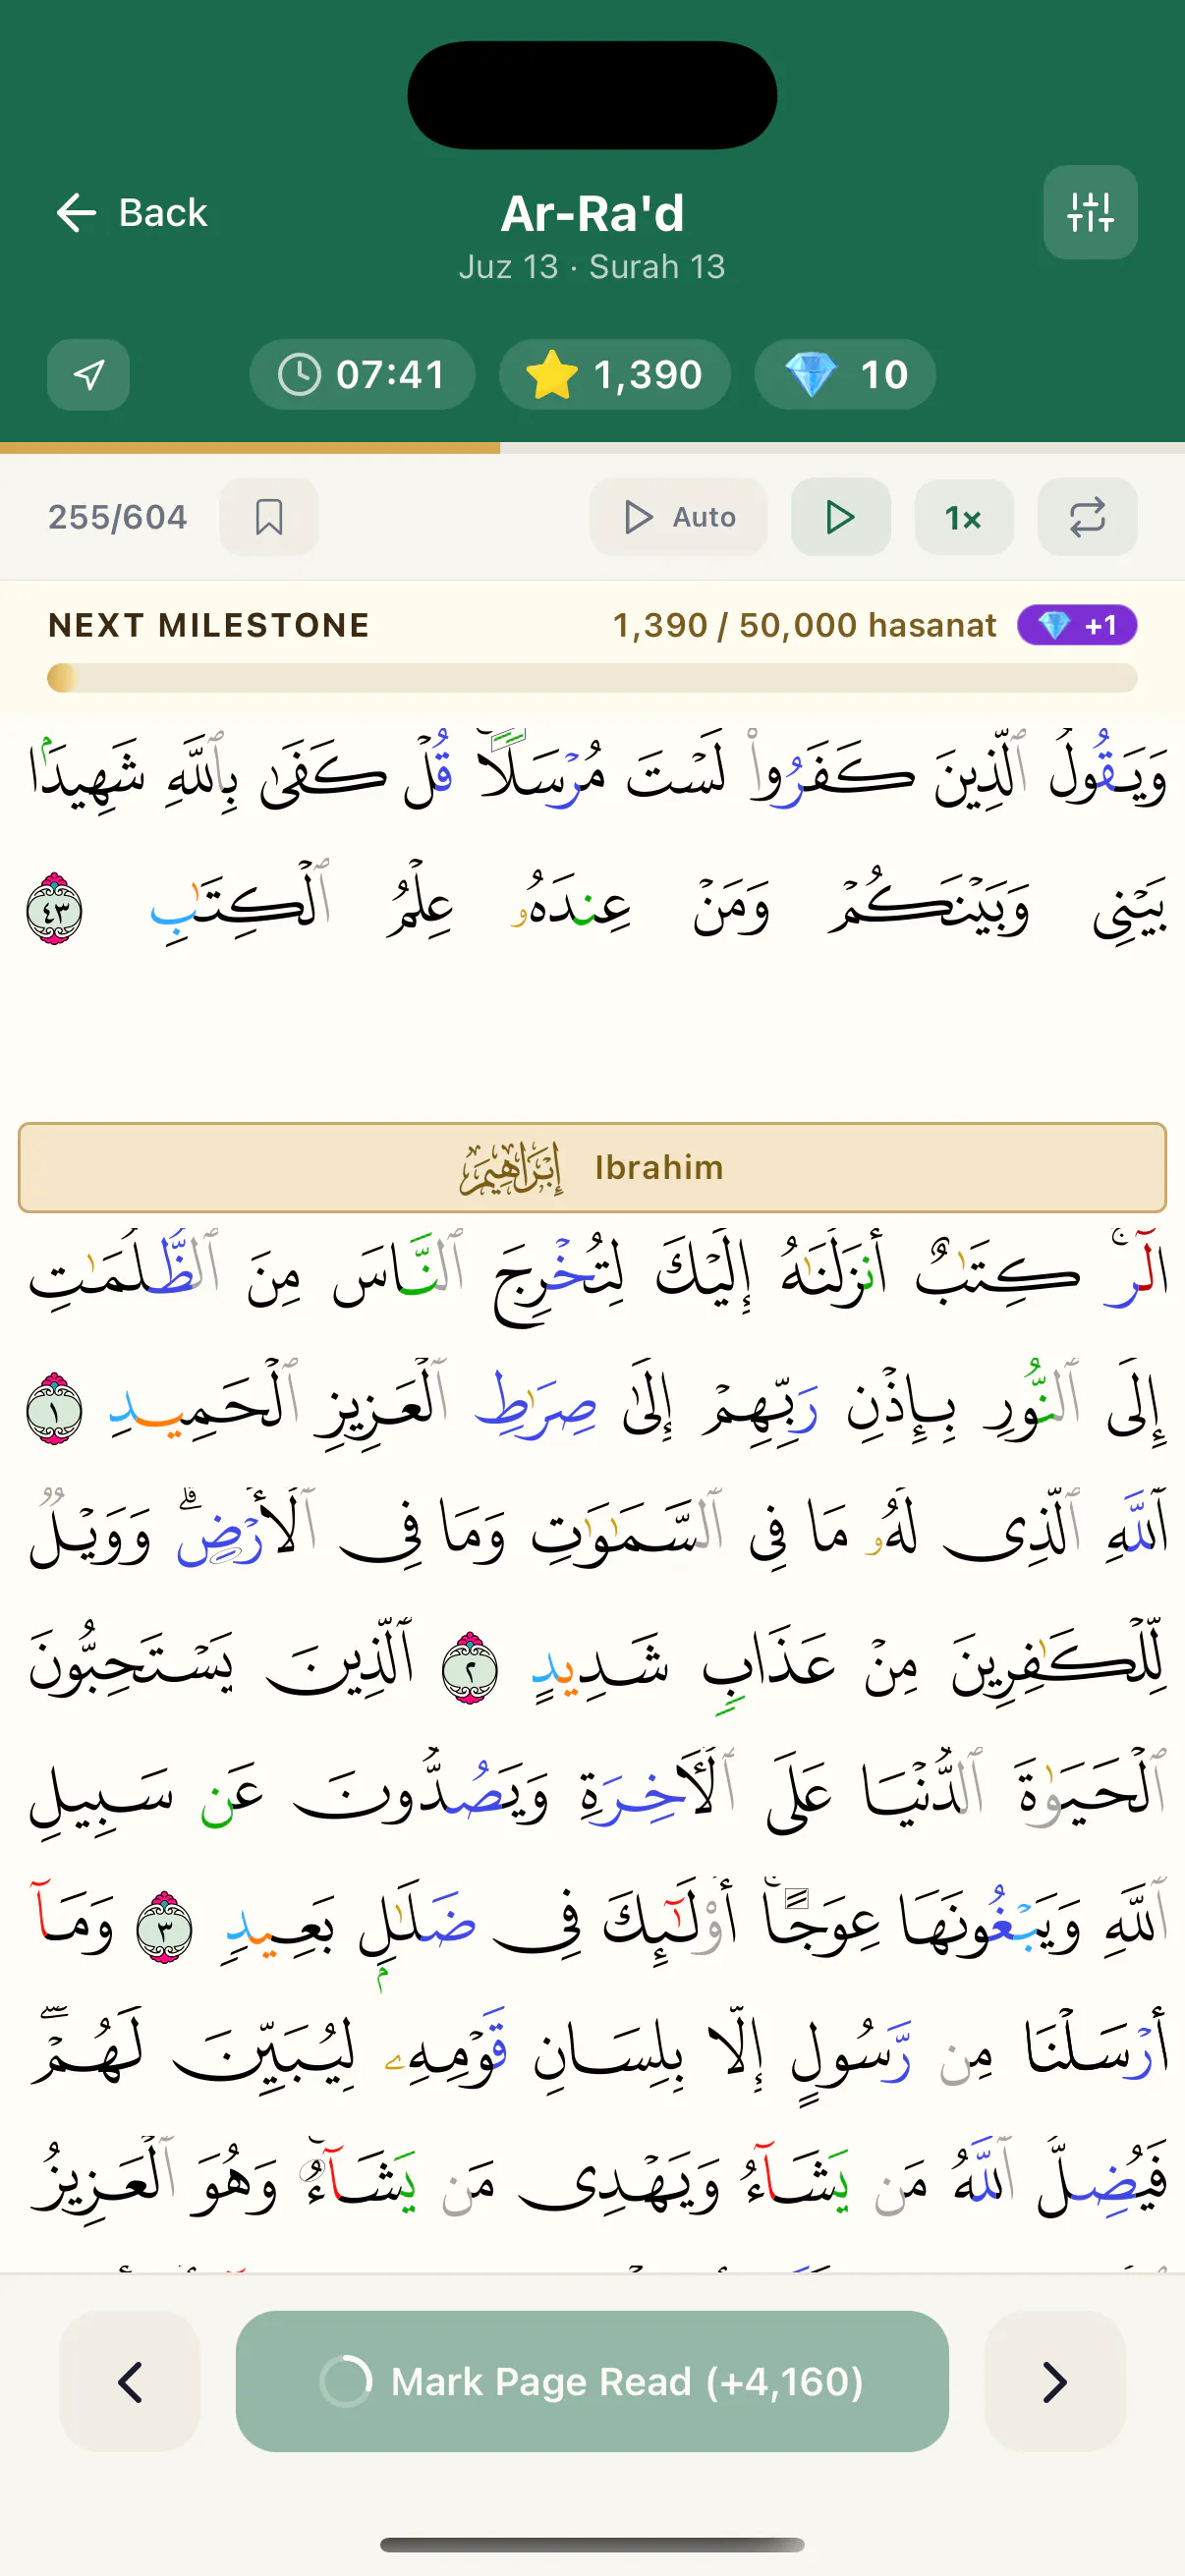 Back
Ar-Ra'd
Juz 13 · Surah 13
07:41
1,390
10
255/604
Auto
1×
NEXT MILESTONE
1,390 / 50,000 hasanat
+1
وَيَقُولُ ٱلَّذِينَ كَفَرُوا۟ لَسْتَ مُرْسَلًۭا ۚ قُلْ كَفَىٰ بِٱللَّهِ شَهِيدًۢا
بَيْنِى وَبَيْنَكُمْ وَمَنْ عِندَهُۥ عِلْمُ ٱلْكِتَـٰبِ ٤٣
إِبْرَاهِيم Ibrahim
الٓر ۚ كِتَـٰبٌ أَنزَلْنَـٰهُ إِلَيْكَ لِتُخْرِجَ ٱلنَّاسَ مِنَ ٱلظُّلُمَـٰتِ
إِلَى ٱلنُّورِ بِإِذْنِ رَبِّهِمْ إِلَىٰ صِرَٰطِ ٱلْعَزِيزِ ٱلْحَمِيدِ ١
ٱللَّهِ ٱلَّذِى لَهُۥ مَا فِى ٱلسَّمَـٰوَٰتِ وَمَا فِى ٱلْأَرْضِ ۗ وَوَيْلٌۭ
لِّلْكَـٰفِرِينَ مِنْ عَذَابٍۢ شَدِيدٍ ٢ ٱلَّذِينَ يَسْتَحِبُّونَ
ٱلْحَيَوٰةَ ٱلدُّنْيَا عَلَى ٱلْـَٔاخِرَةِ وَيَصُدُّونَ عَن سَبِيلِ
ٱللَّهِ وَيَبْغُونَهَا عِوَجًا ۚ أُو۟لَـٰٓئِكَ فِى ضَلَـٰلٍۭ بَعِيدٍ ٣ وَمَآ
أَرْسَلْنَا مِن رَّسُولٍ إِلَّا بِلِسَانِ قَوْمِهِۦ لِيُبَيِّنَ لَهُمْ ۖ
فَيُضِلُّ ٱللَّهُ مَن يَشَآءُ وَيَهْدِى مَن يَشَآءُ ۚ وَهُوَ ٱلْعَزِيزُ
Mark Page Read (+4,160)